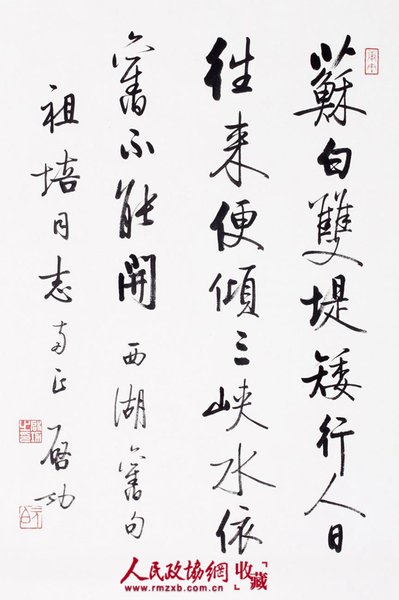 蘇白雙堤矮行人日
往来便傾三峽水依
舊不能開 西湖舊句
祖培同志正 启功
人民政協網「收藏」
www.rmzxb.com.cn